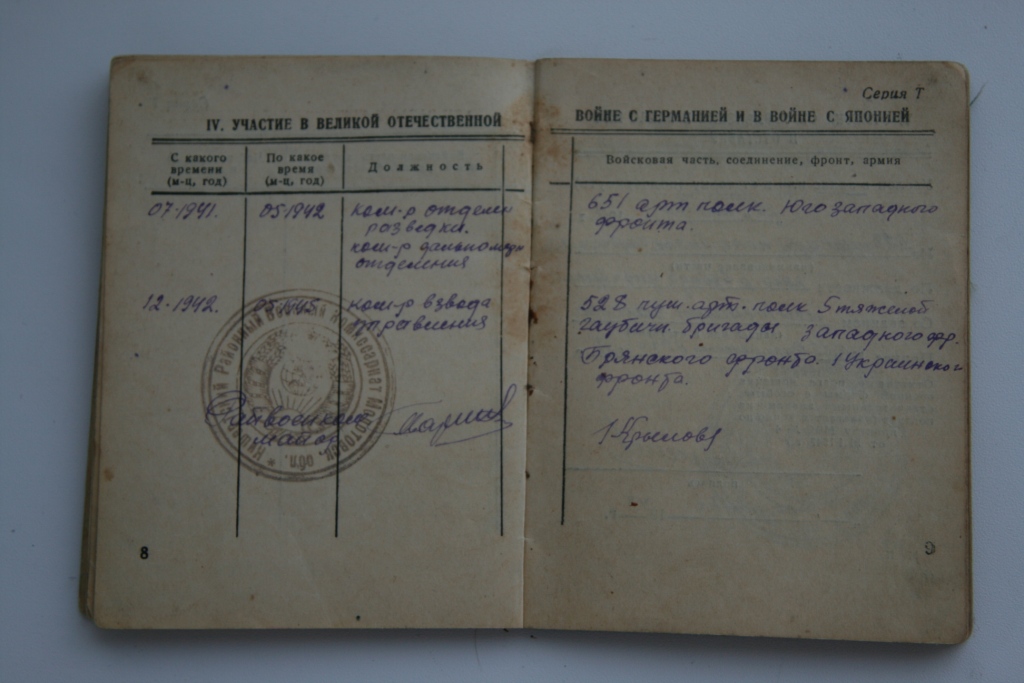 IV. УЧАСТИЕ В ВЕЛИКОЙ ОТЕЧЕСТВЕННОЙ
С какого времени (м-ц, год)
По какое время (м-ц, год)
Должность
07.1941.
05.1942
ком-р отделен
разведки.
ком-р дальномерн
отделения
12.1942.
05.1945
ком-р взвода
управления
Районный Военный Комиссариат Молотовск. обл.
Райвоенком
майор
8
Серия Т
ВОЙНЕ С ГЕРМАНИЕЙ И В ВОЙНЕ С ЯПОНИЕЙ
Войсковая часть, соединение, фронт, армия
651 арт полк. Юго западного
фронта.
528 пуш. арт. полк 5 тяжелой
гаубичн. бригады западного фр.
Брянского фронта. 1 Украинского
фронта.
/Крылов/
9